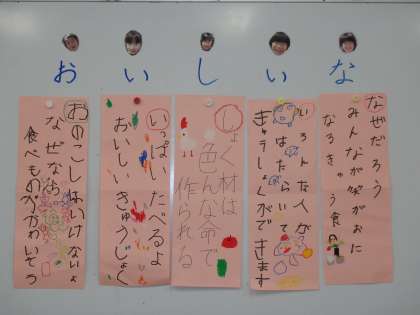 おいしいな
おのこしはいけないよ
なぜなら
食べものがかわいそう
いっぱいたべるよ
おいしいきゅうしょく
しょく材は
色んな命で
作られる
いろんな人が
はたらいて
きゅうしょくができます
なぜだろう
みんなが笑がおに
なるきゅう食